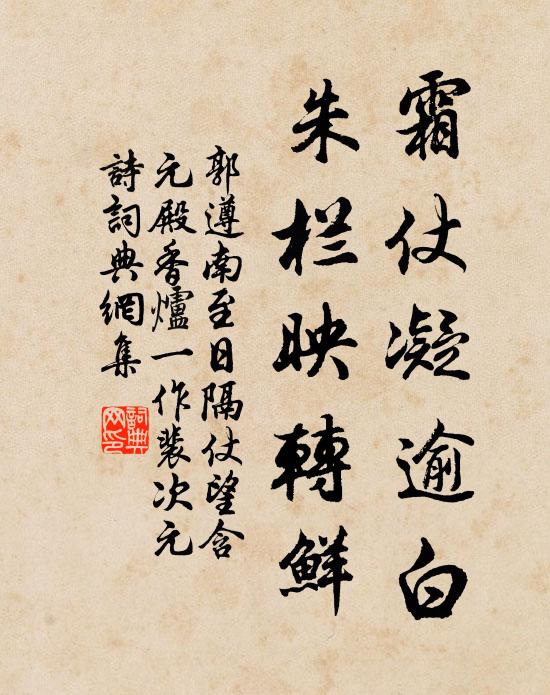 霜仗凝逾白
朱栏映轉鮮
郭遵南至日隔仗望含
元殿香爐一作裴次元
詩詞典網集
詞典网印